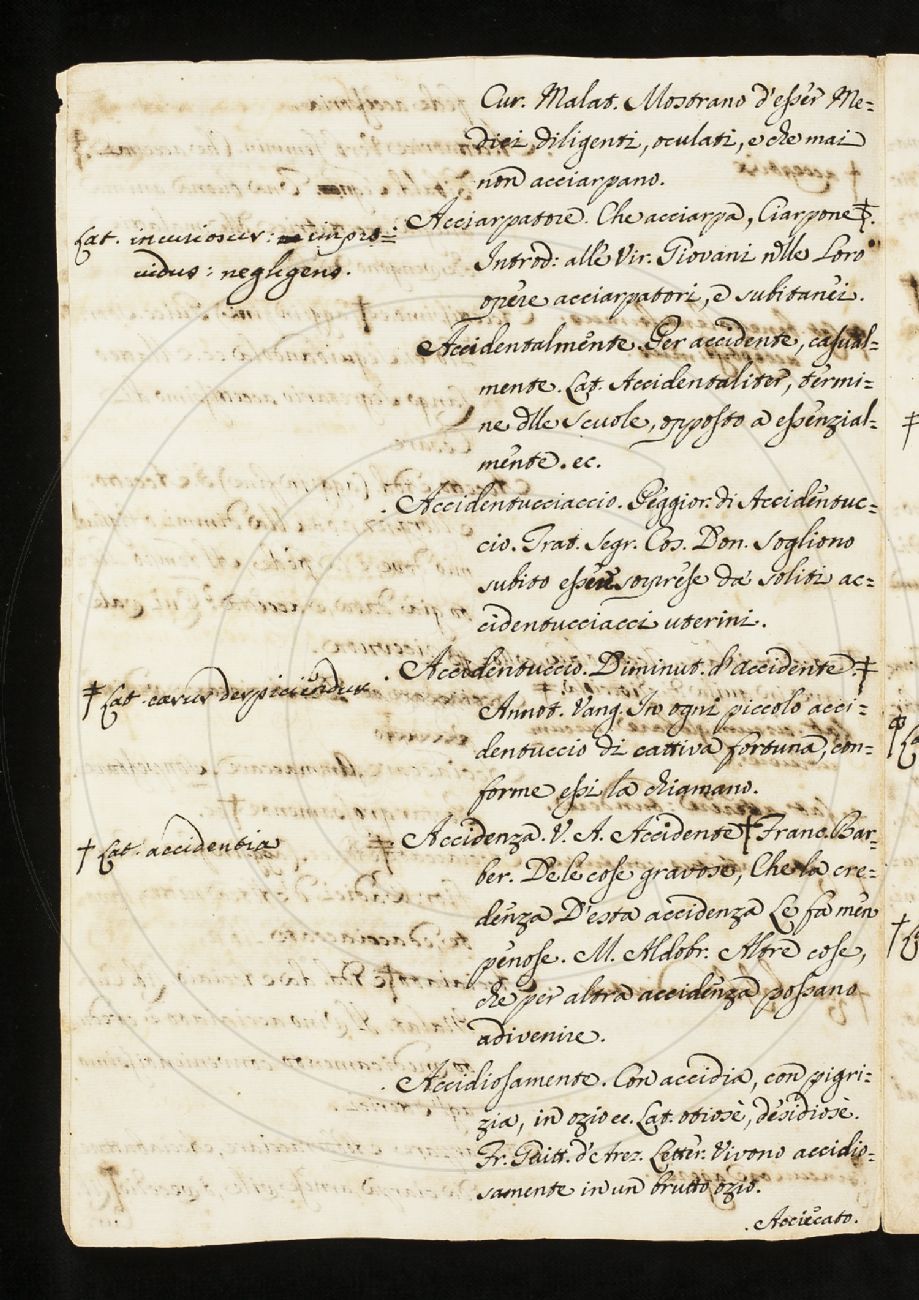 Cur. Malat. Mostrano d'esser Me=
dici diligenti, oculati, e che mai
non acciarpano.
Acciarpatore. Che acciarpa, Ciarpone ‡.
Lat. incuriosus: impro=
vidus: negligens.
Introd: alle Vir. Giovani nelle Loro
opere acciarpatori, e subitanei.
Accidentalmente. Per accidente, casual=
mente. Lat. Accidentaliter, termi=
ne delle Scuole, opposto a essenzial=
mente. ec.
Accidentucciaccio. Peggior. di Accidentuc=
cio. Trat. Segr. Cos. Don. Sogliono
subito essere soprese da soliti ac=
cidentucciacci uterini.
Accidentuccio. Diminut. d'accidente. ‡
‡ Lat. casus despiciendus
Annot. Vang. In ogni piccolo acci=
dentuccio di cattiva fortuna, con=
forme essi la chiamano.
Accidenza. V. A. Accidente † Franc. Bar=
† Lat. accidentia
ber. De le cose gravose, Che la cre=
denza D'esta accidenza Le fa men
penose. M. Aldobr. Altre cose,
che per altra accidenza possano
adivenire.
Accidiosamente. Con accidia, con pigri=
zia, in ozio ec. Lat. otiosè, desidiosè.
Fr. Guitt. d'Arez. Letter. Vivono accidio=
samente in un brutto ozio.
Acciecato.